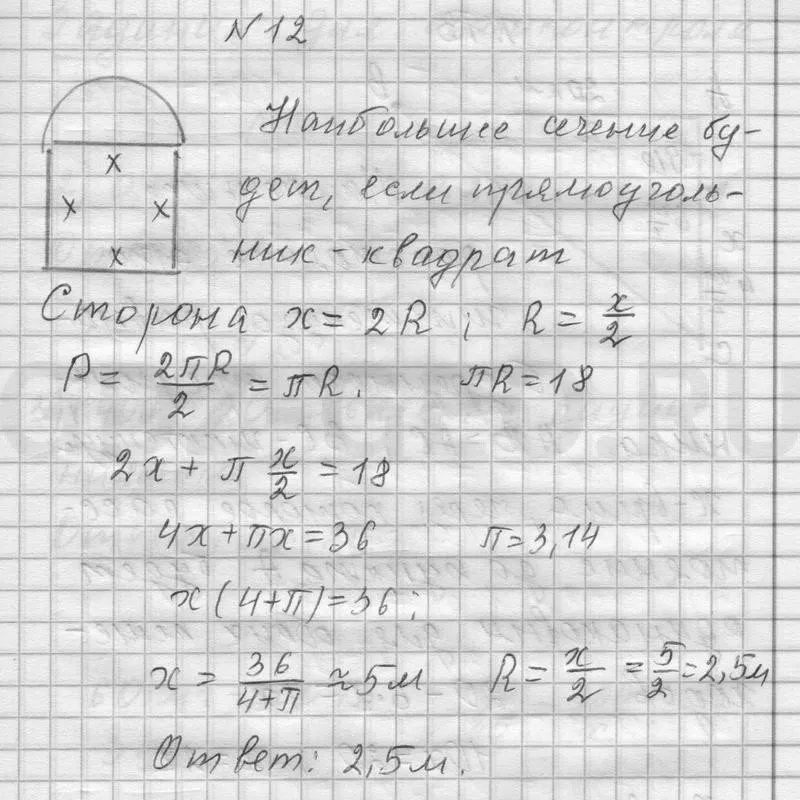 N 12
x
x x
x
Наибольшее сечение бу-
дет, если прямоуголь-
ник - квадрат
Сторона x = 2R ; R = x/2
P = 2πR/2 = πR. πR = 18
2x + π x/2 = 18
4x + πx = 36 π = 3,14
x(4+π) = 36;
x = 36/(4+π) ≈ 5м R = x/2 = 5/2 = 2,5м
Ответ: 2,5м.